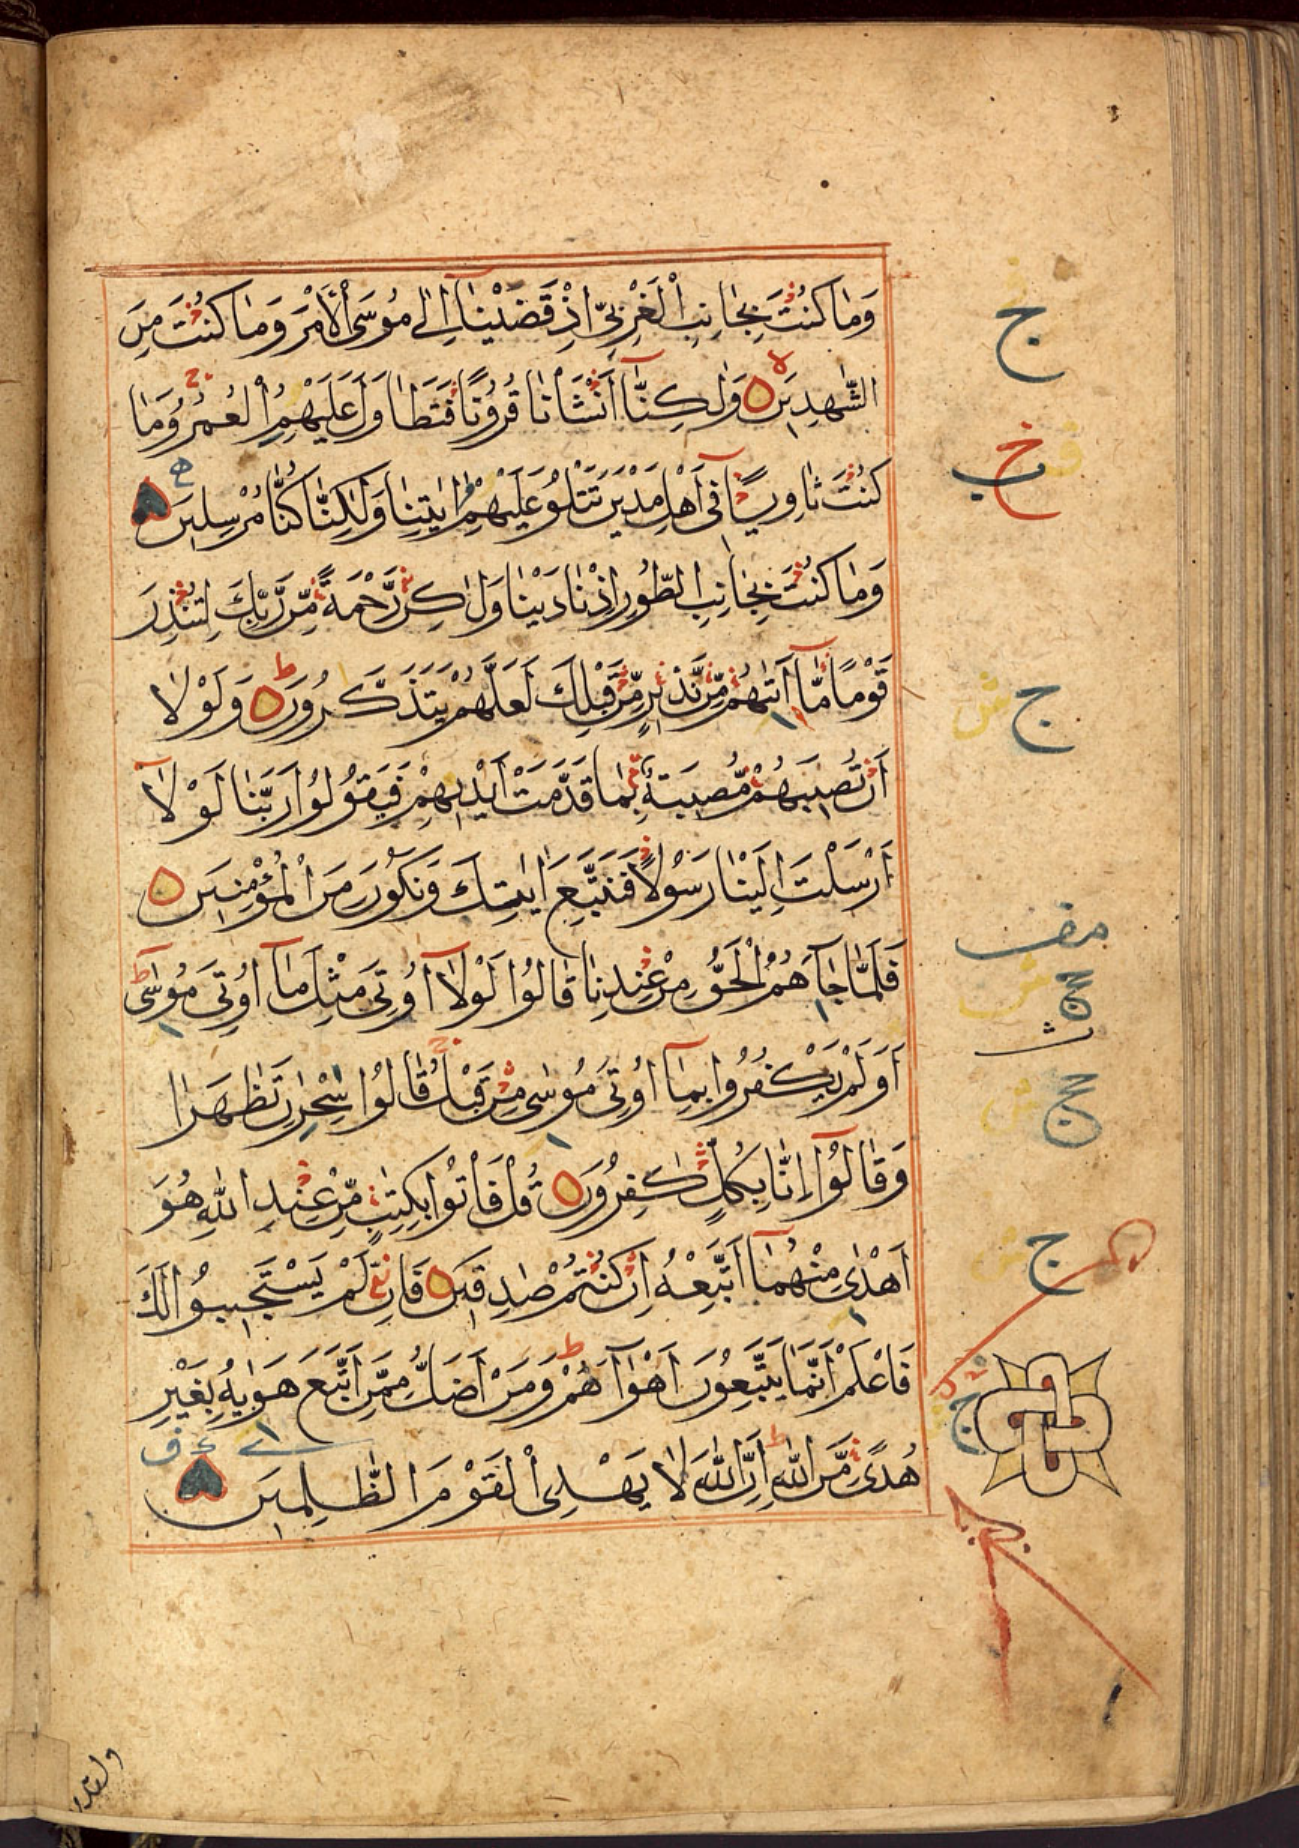 وَمَا كُنْتَ بِجَانِبِ الْغَرْبِيِّ اِذْ قَضَيْنَآ اِلٰى مُوسَى الْاَمْرَ وَمَا كُنْتَ مِنَ
الشّٰهِدِيْنَ وَلٰكِنَّآ اَنْشَأْنَا قُرُوْنًا فَتَطَاوَلَ عَلَيْهِمُ الْعُمُرُ وَمَا
كُنْتَ ثَاوِيًا فِىٓ اَهْلِ مَدْيَنَ تَتْلُوْ عَلَيْهِمْ اٰيٰتِنَا وَلٰكِنَّا كُنَّا مُرْسِلِيْنَ
وَمَا كُنْتَ بِجَانِبِ الطُّوْرِ اِذْ نَادَيْنَا وَلٰكِنْ رَّحْمَةً مِّنْ رَّبِّكَ لِتُنْذِرَ
قَوْمًا مَّآ اَتٰىهُمْ مِّنْ نَّذِيْرٍ مِّنْ قَبْلِكَ لَعَلَّهُمْ يَتَذَكَّرُوْنَ وَلَوْلَا
اَنْ تُصِيْبَهُمْ مُّصِيْبَةٌ بِمَا قَدَّمَتْ اَيْدِيْهِمْ فَيَقُوْلُوْا رَبَّنَا لَوْلَآ
اَرْسَلْتَ اِلَيْنَا رَسُوْلًا فَنَتَّبِعَ اٰيٰتِكَ وَنَكُوْنَ مِنَ الْمُؤْمِنِيْنَ
فَلَمَّا جَآءَهُمُ الْحَقُّ مِنْ عِنْدِنَا قَالُوْا لَوْلَآ اُوْتِىَ مِثْلَ مَآ اُوْتِىَ مُوْسٰى
اَوَلَمْ يَكْفُرُوْا بِمَآ اُوْتِىَ مُوْسٰى مِنْ قَبْلُ قَالُوْا سِحْرٰنِ تَظَاهَرَا
وَقَالُوْٓا اِنَّا بِكُلٍّ كٰفِرُوْنَ قُلْ فَأْتُوْا بِكِتٰبٍ مِّنْ عِنْدِ اللّٰهِ هُوَ
اَهْدٰى مِنْهُمَآ اَتَّبِعْهُ اِنْ كُنْتُمْ صٰدِقِيْنَ فَاِنْ لَّمْ يَسْتَجِيْبُوْا لَكَ
فَاعْلَمْ اَنَّمَا يَتَّبِعُوْنَ اَهْوَآءَهُمْ وَمَنْ اَضَلُّ مِمَّنِ اتَّبَعَ هَوٰيهُ بِغَيْرِ
هُدًى مِّنَ اللّٰهِ اِنَّ اللّٰهَ لَا يَهْدِى الْقَوْمَ الظّٰلِمِيْنَ
ولقد